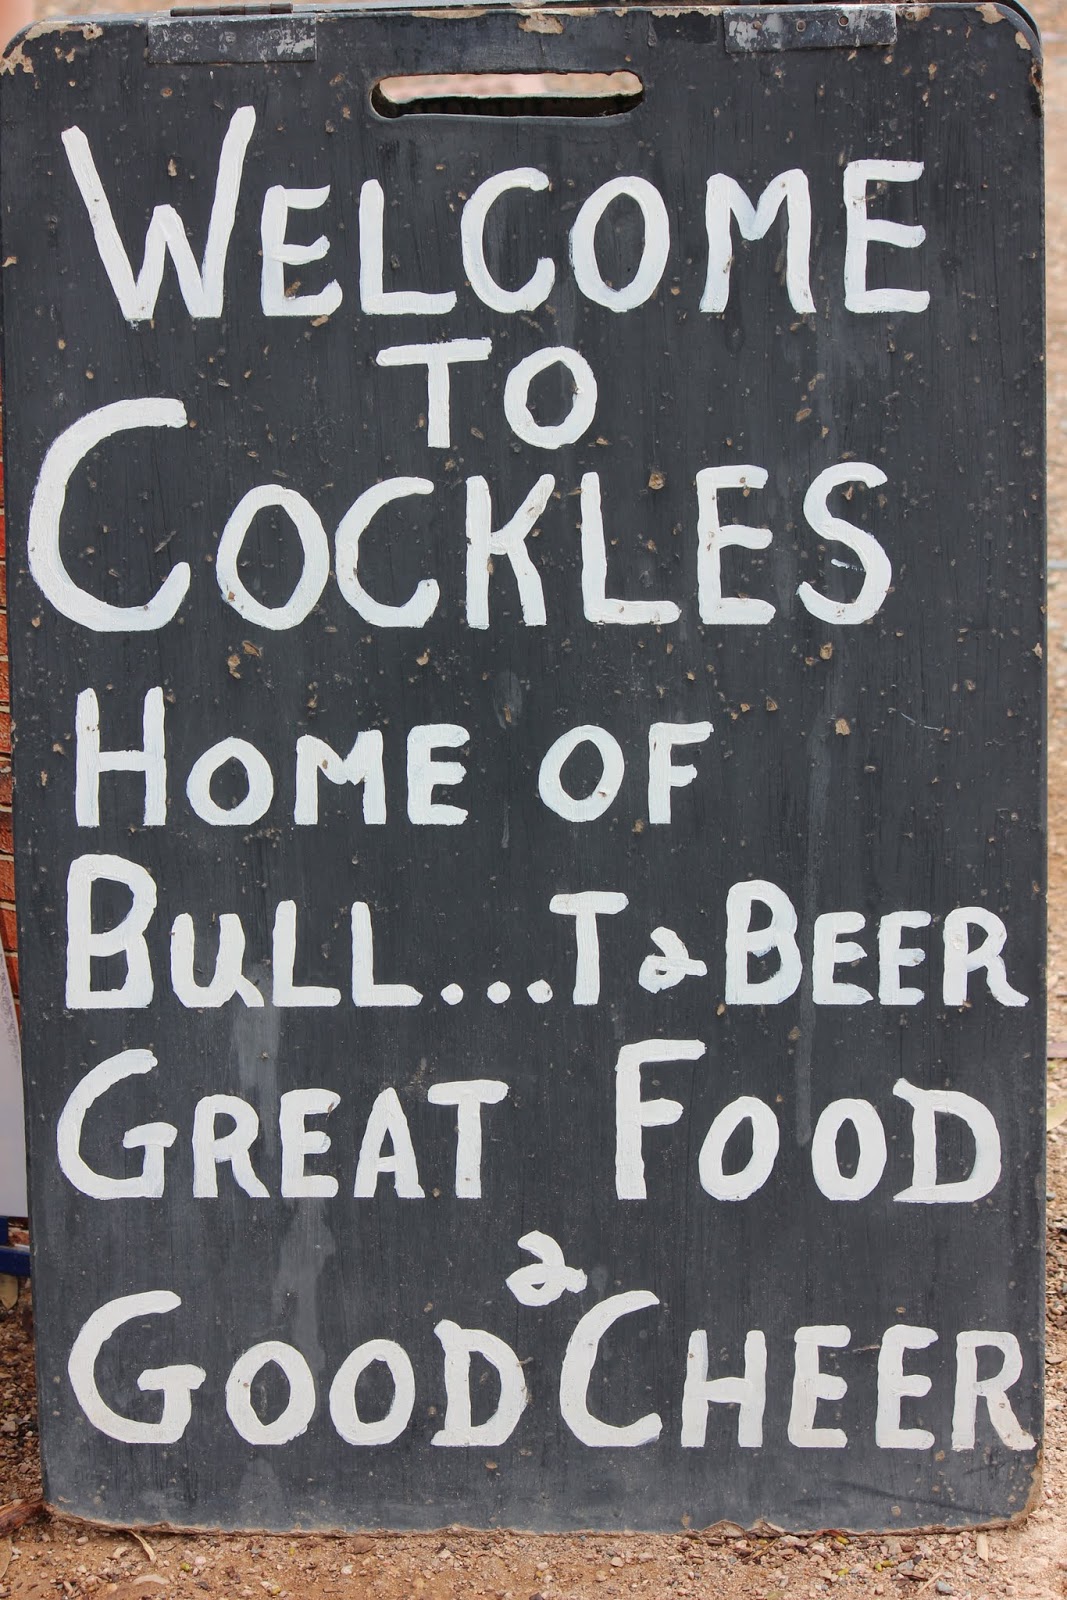 WELCOME
TO
COCKLES
HOME OF
BULL...T & BEER
GREAT FOOD
&
GOOD CHEER